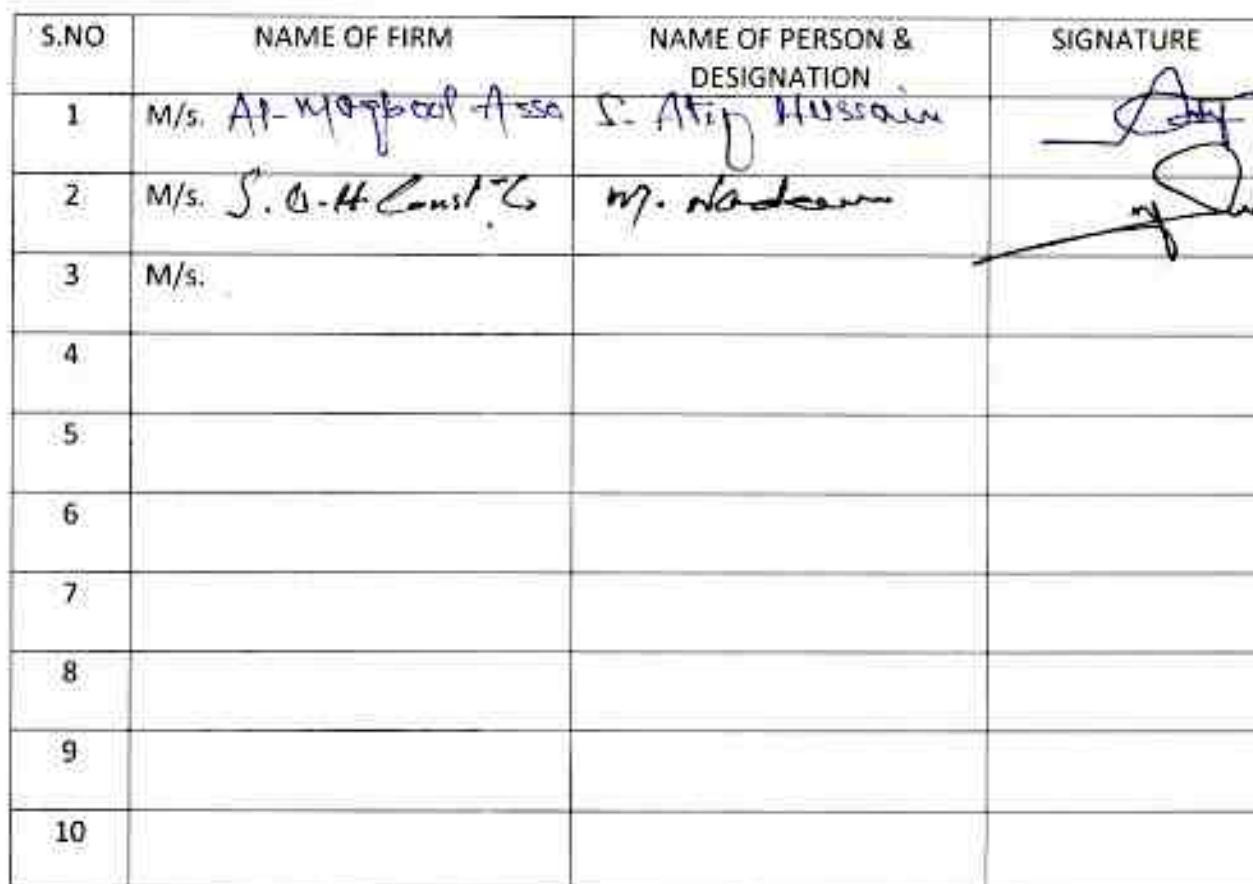 S.NO NAME OF FIRM NAME OF PERSON & DESIGNATION SIGNATURE
1 M/s. Al-Maqbool Asso S. Atif Hussain
2 M/s. S. O. H Const. Co M. Nadeem
3 M/s.
4
5
6
7
8
9
10